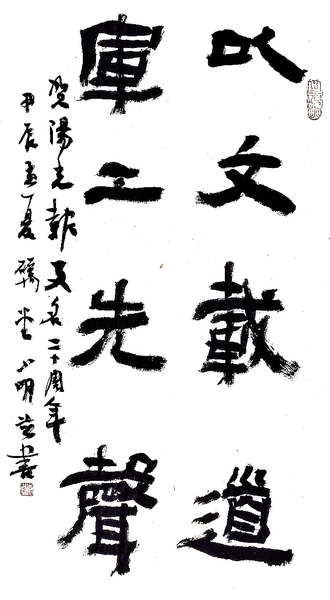 以文載道
軍工先聲
賀陽光報名二十周年
甲辰孟夏堂明書